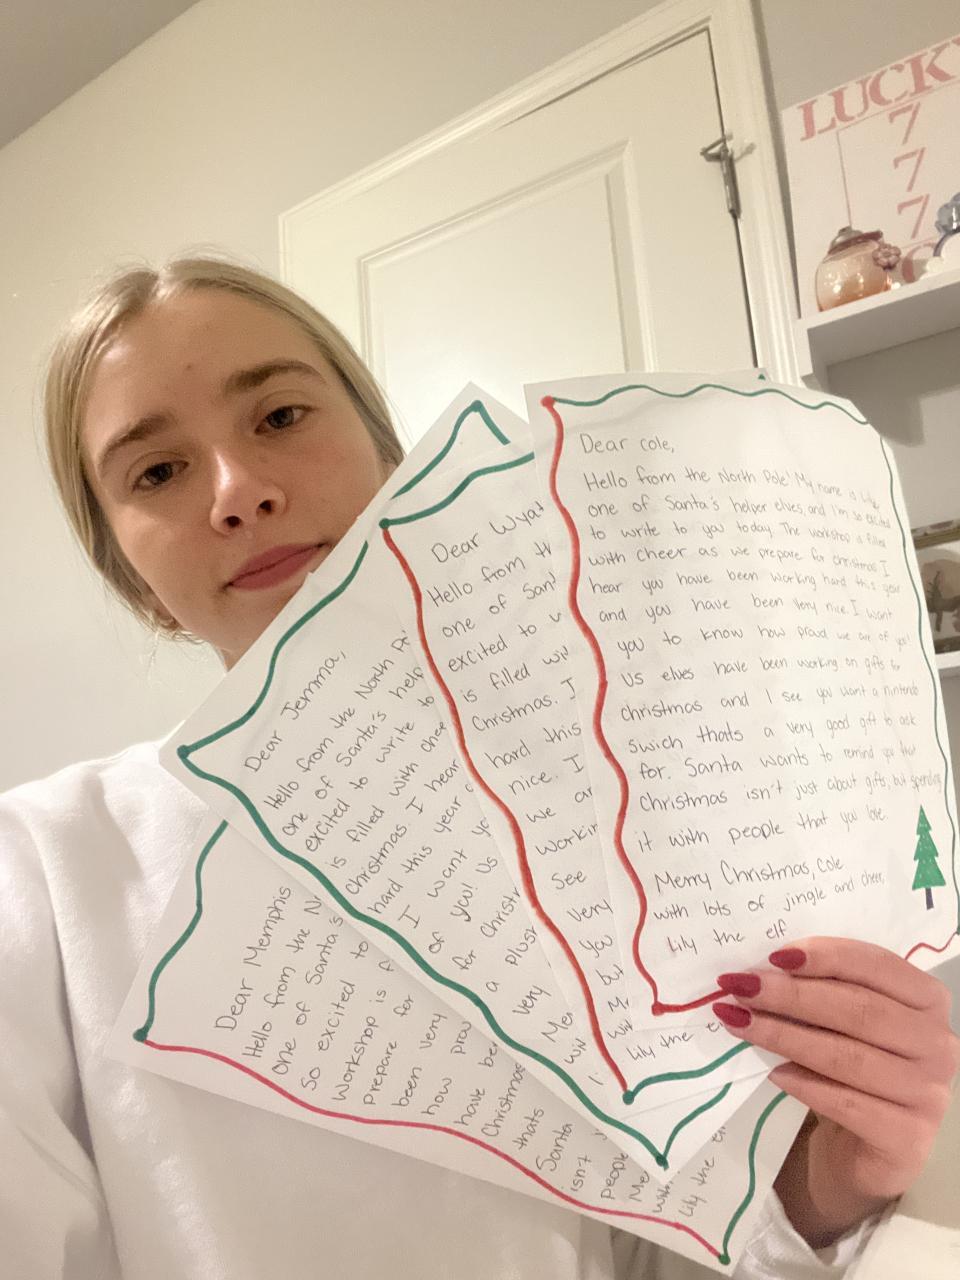 LUCKY
7
7
7
Dear cole,
Hello from the North Pole! My name is Lily,
one of Santa's helper elves, and I'm so excited
to write to you today. The workshop is filled
with cheer as we prepare for christmas I
hear you have been working hard this year
and you have been very nice. I want
you to know how proud we are of you!
Us elves have been working on gifts for
christmas and I see you want a nintendo
swich thats a very good gift to ask
for. Santa wants to remind you that
Christmas isn't just about gifts, but spending
it with people that you love.
Merry Christmas, Cole
with lots of jingle and cheer,
Lily the elf
Dear Wyat
Hello from th
one of San
excited to w
is filled wi
Christmas. I
hard this
nice. I
we ar
workin
see
very
you
but
M
wi
Lily the e
Dear Jemma,
Hello from the North Po
one of Santa's help
excited to write to
is filled with chee
Christmas. I hear
hard this year
I want
of you! Us
for Christ
a plus
very
Me
wi
Dear Memphis
Hello from the N
One of Santa's
So excited to
Workshop is f
prepare for
been very
how prou
have be
Christmas
thats
Santa
isn't
people
Me
with
Lily the e